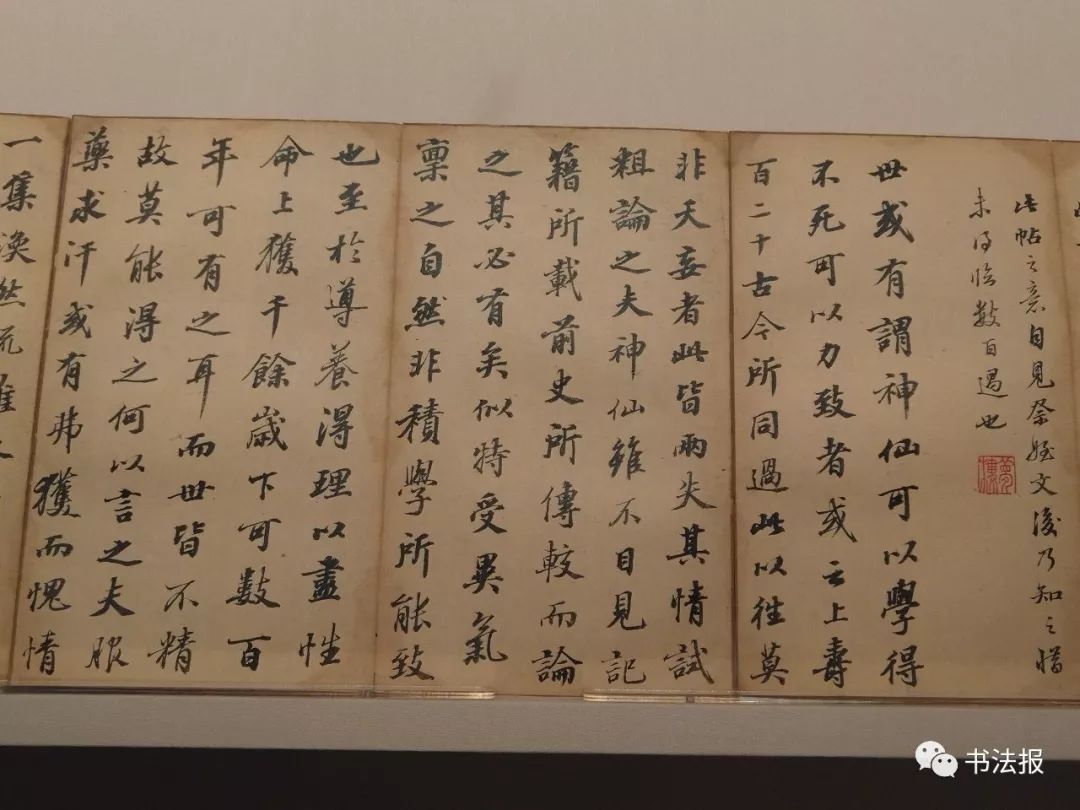 此帖之意自見祭姪文後乃知之惜
未得臨數百過也
夢樓
世或有謂神仙可以學得
不死可以力致者或云上壽
百二十古今所同過此以往莫
非天妄者此皆兩失其情試
粗論之夫神仙雖不目見記
籍所載前史所傳較而論
之其必有矣似特受異氣
稟之自然非積學所能致
也至於導養得理以盡性
命上獲千餘歲下可數百
年可有之耳而世皆不精
故莫能得之何以言之夫服
藥求汗或有弗獲而愧情
一集渙然流離
书法报